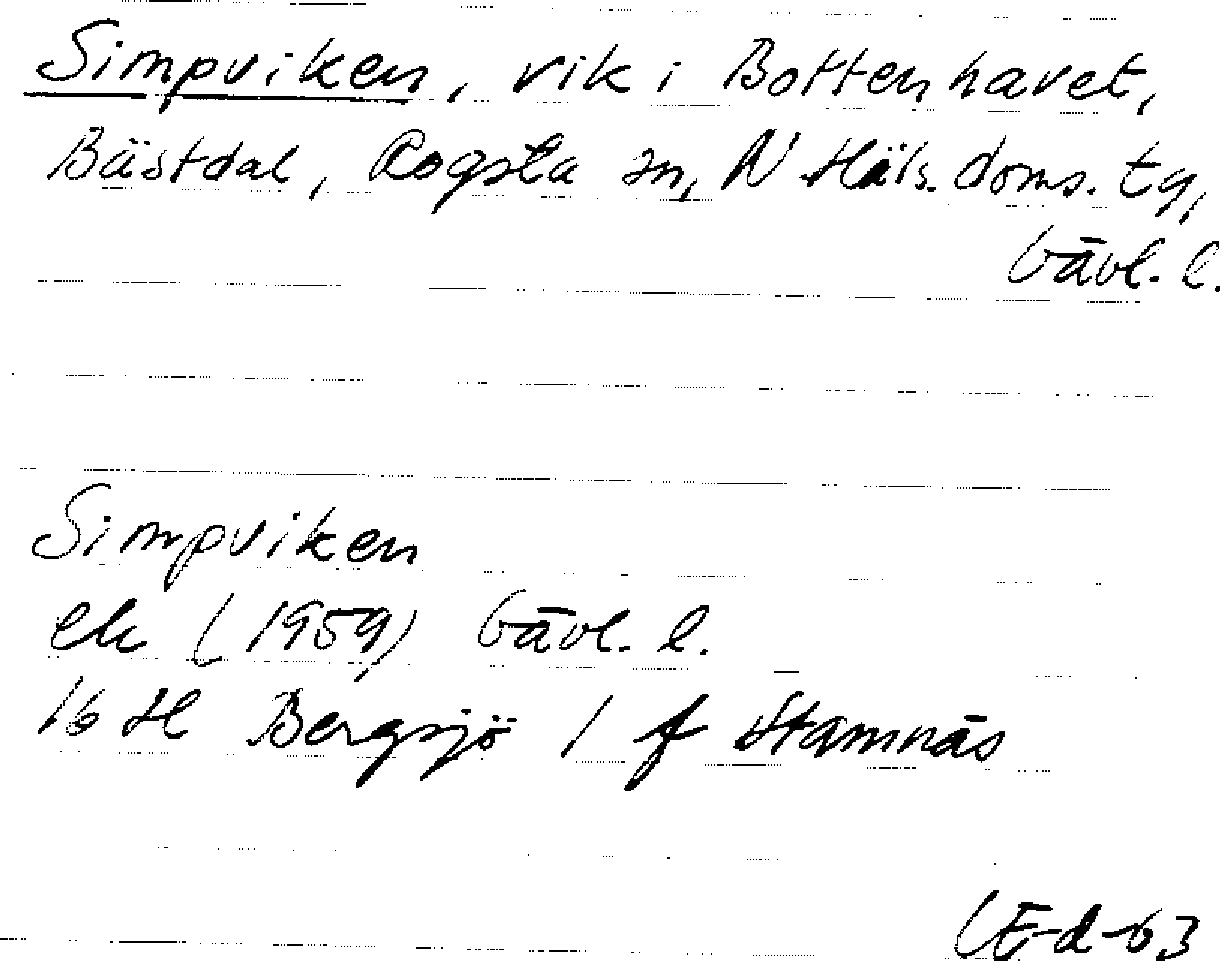 Simpviken, vik i Bottenhavet,
Bästdal, Rogsta sn, N Häls. doms. tg,
Gävl. l.
Simpviken
ek (1959) Gävl. l.
16 H Bergsjö 1 f Stamnäs